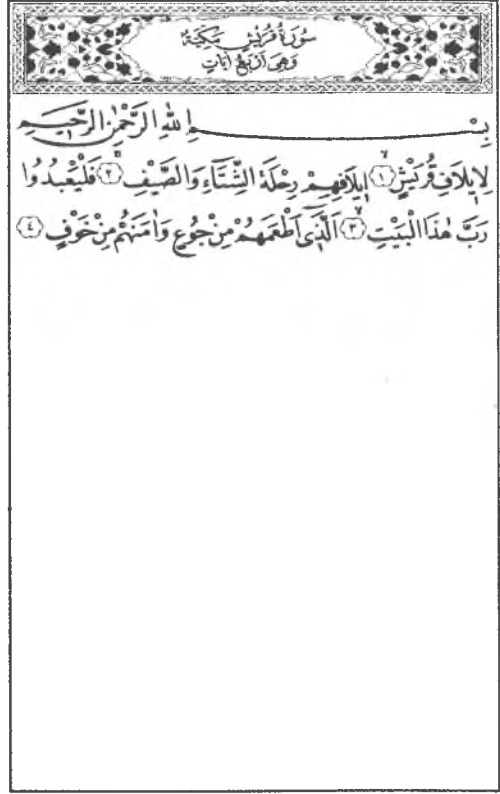 سُورَةُ قُرَيْشٍ مَكِّيَّةٌ
وَهِيَ اَرْبَعُ اٰيَاتٍ
بِسْمِ اللّٰهِ الرَّحْمٰنِ الرَّحٖيمِ
لِاٖيلَافِ قُرَيْشٍۙ ﴿١﴾ اٖيلَافِهِمْ رِحْلَةَ الشِّتَٓاءِ وَالصَّيْفِۚ ﴿٢﴾ فَلْيَعْبُدُوا
رَبَّ هٰذَا الْبَيْتِۙ ﴿٣﴾ اَلَّذٖٓي اَطْعَمَهُمْ مِنْ جُوعٍ وَاٰمَنَهُمْ مِنْ خَوْفٍ ﴿٤﴾